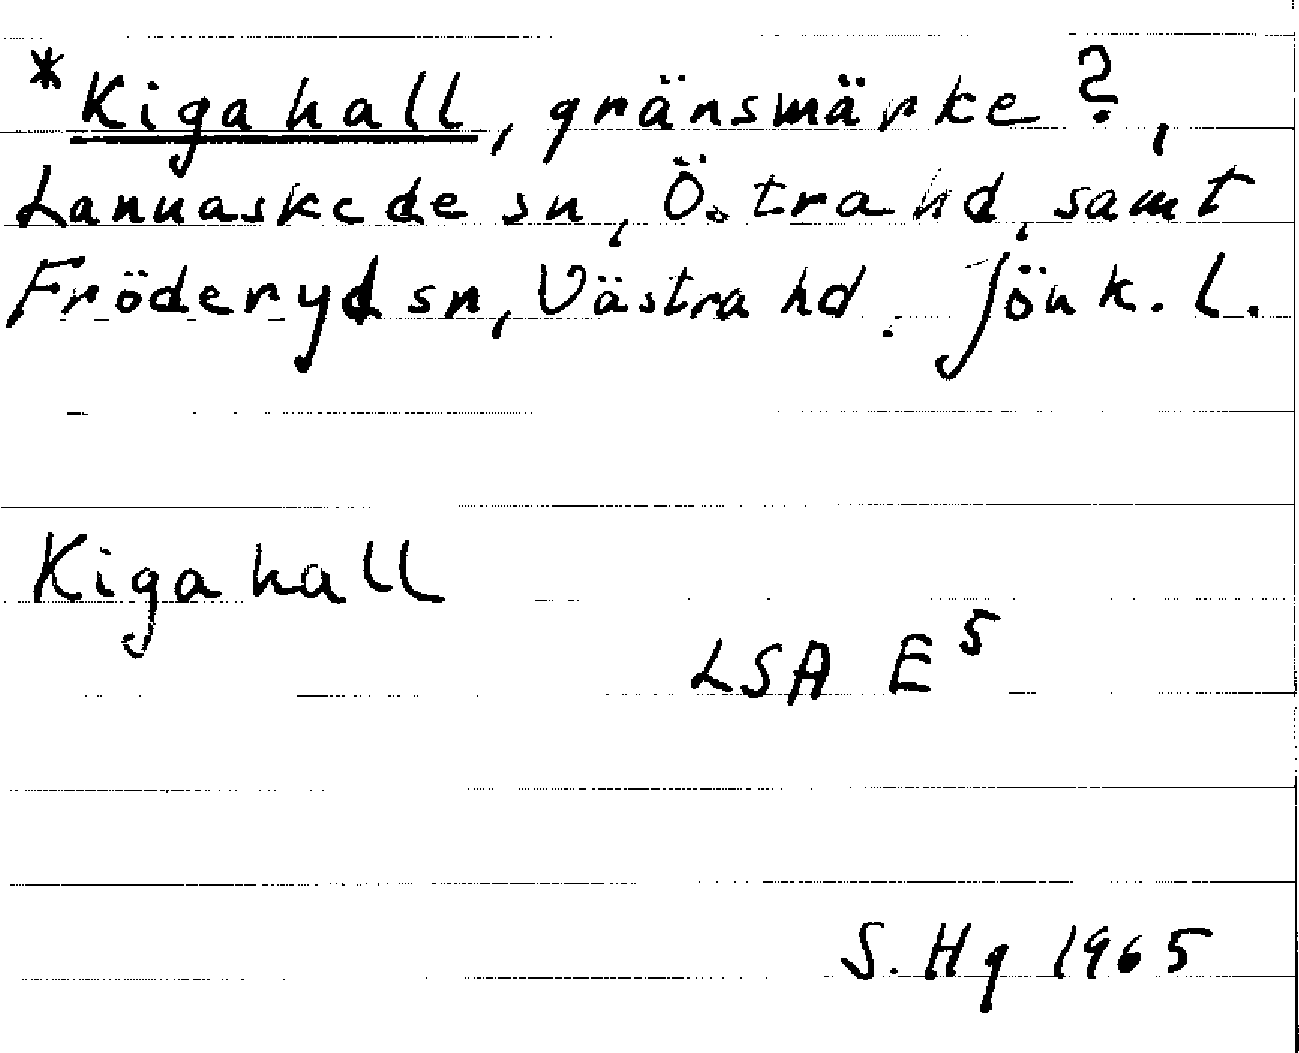 *Kigahall, gränsmärke?,
Lannaskede sn, Östra hd, samt
Fröderyd sn, Västra hd. Jönk. L.
Kigahall
LSA E⁵
S. Hg 1965